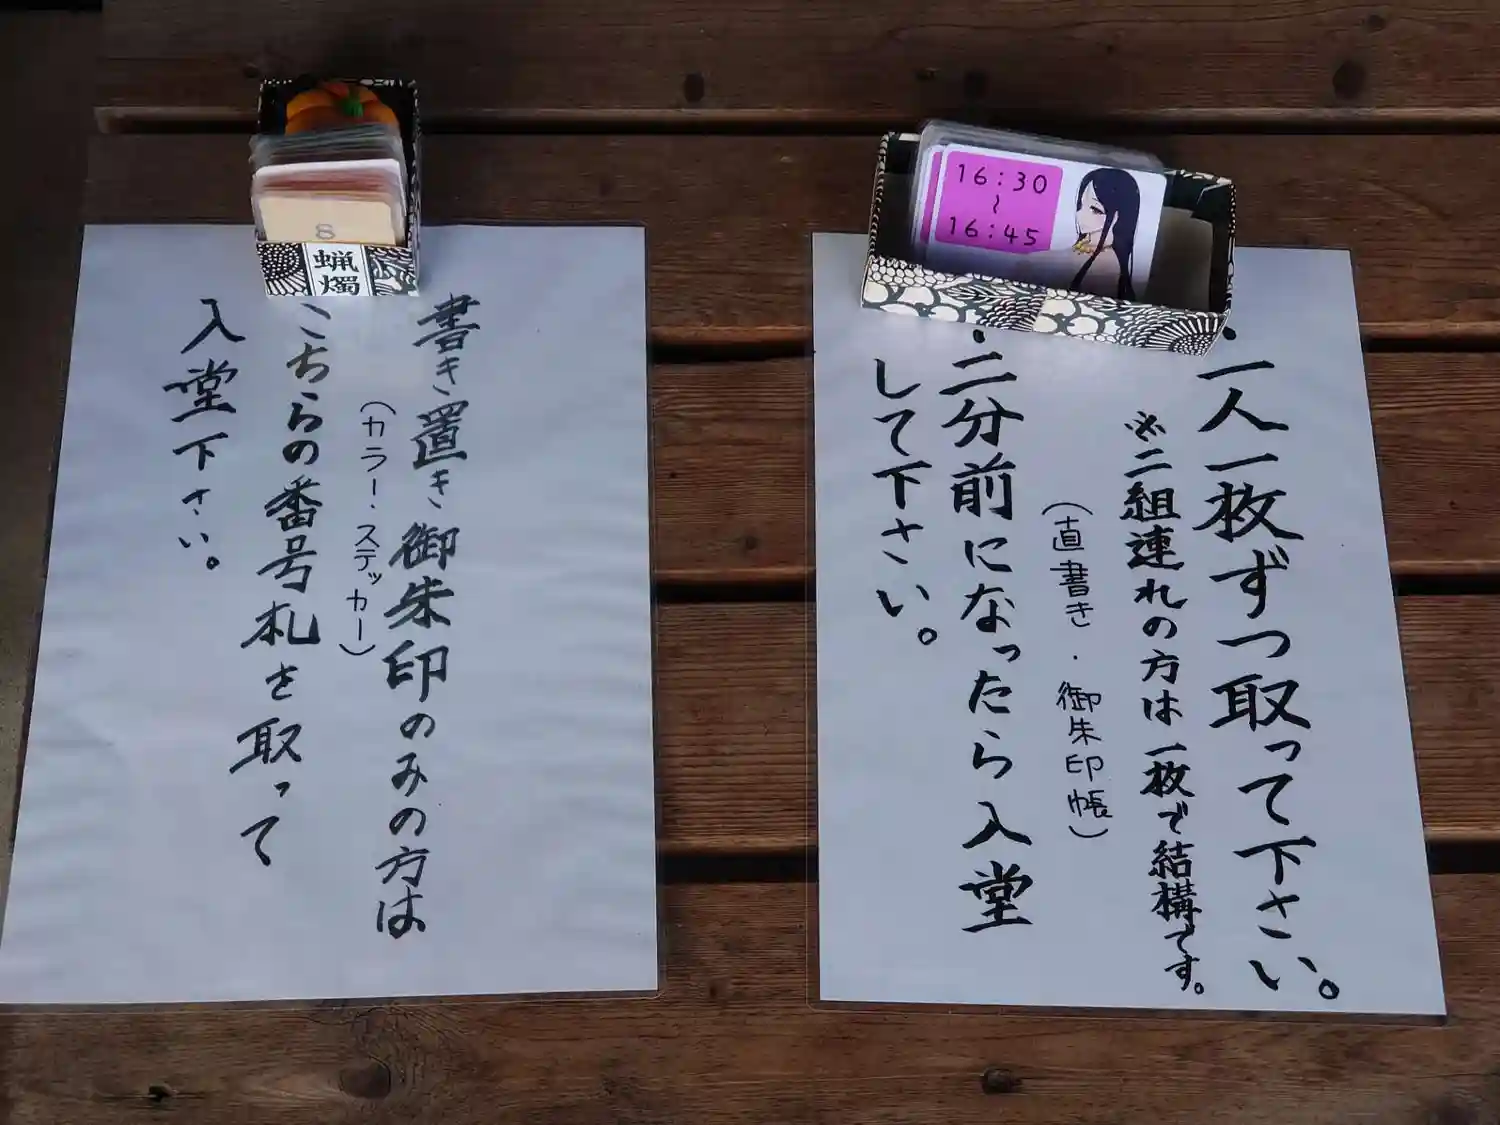 8
蝋燭
書き置き御朱印のみの方は
（カラー・ステッカー）
こちらの番号札を取って
入堂下さい。
16:30
〜
16:45
・一人一枚ずつ取って下さい。
※二組連れの方は一枚で結構です。
（直書き・御朱印帳）
・二分前になったら入堂
して下さい。